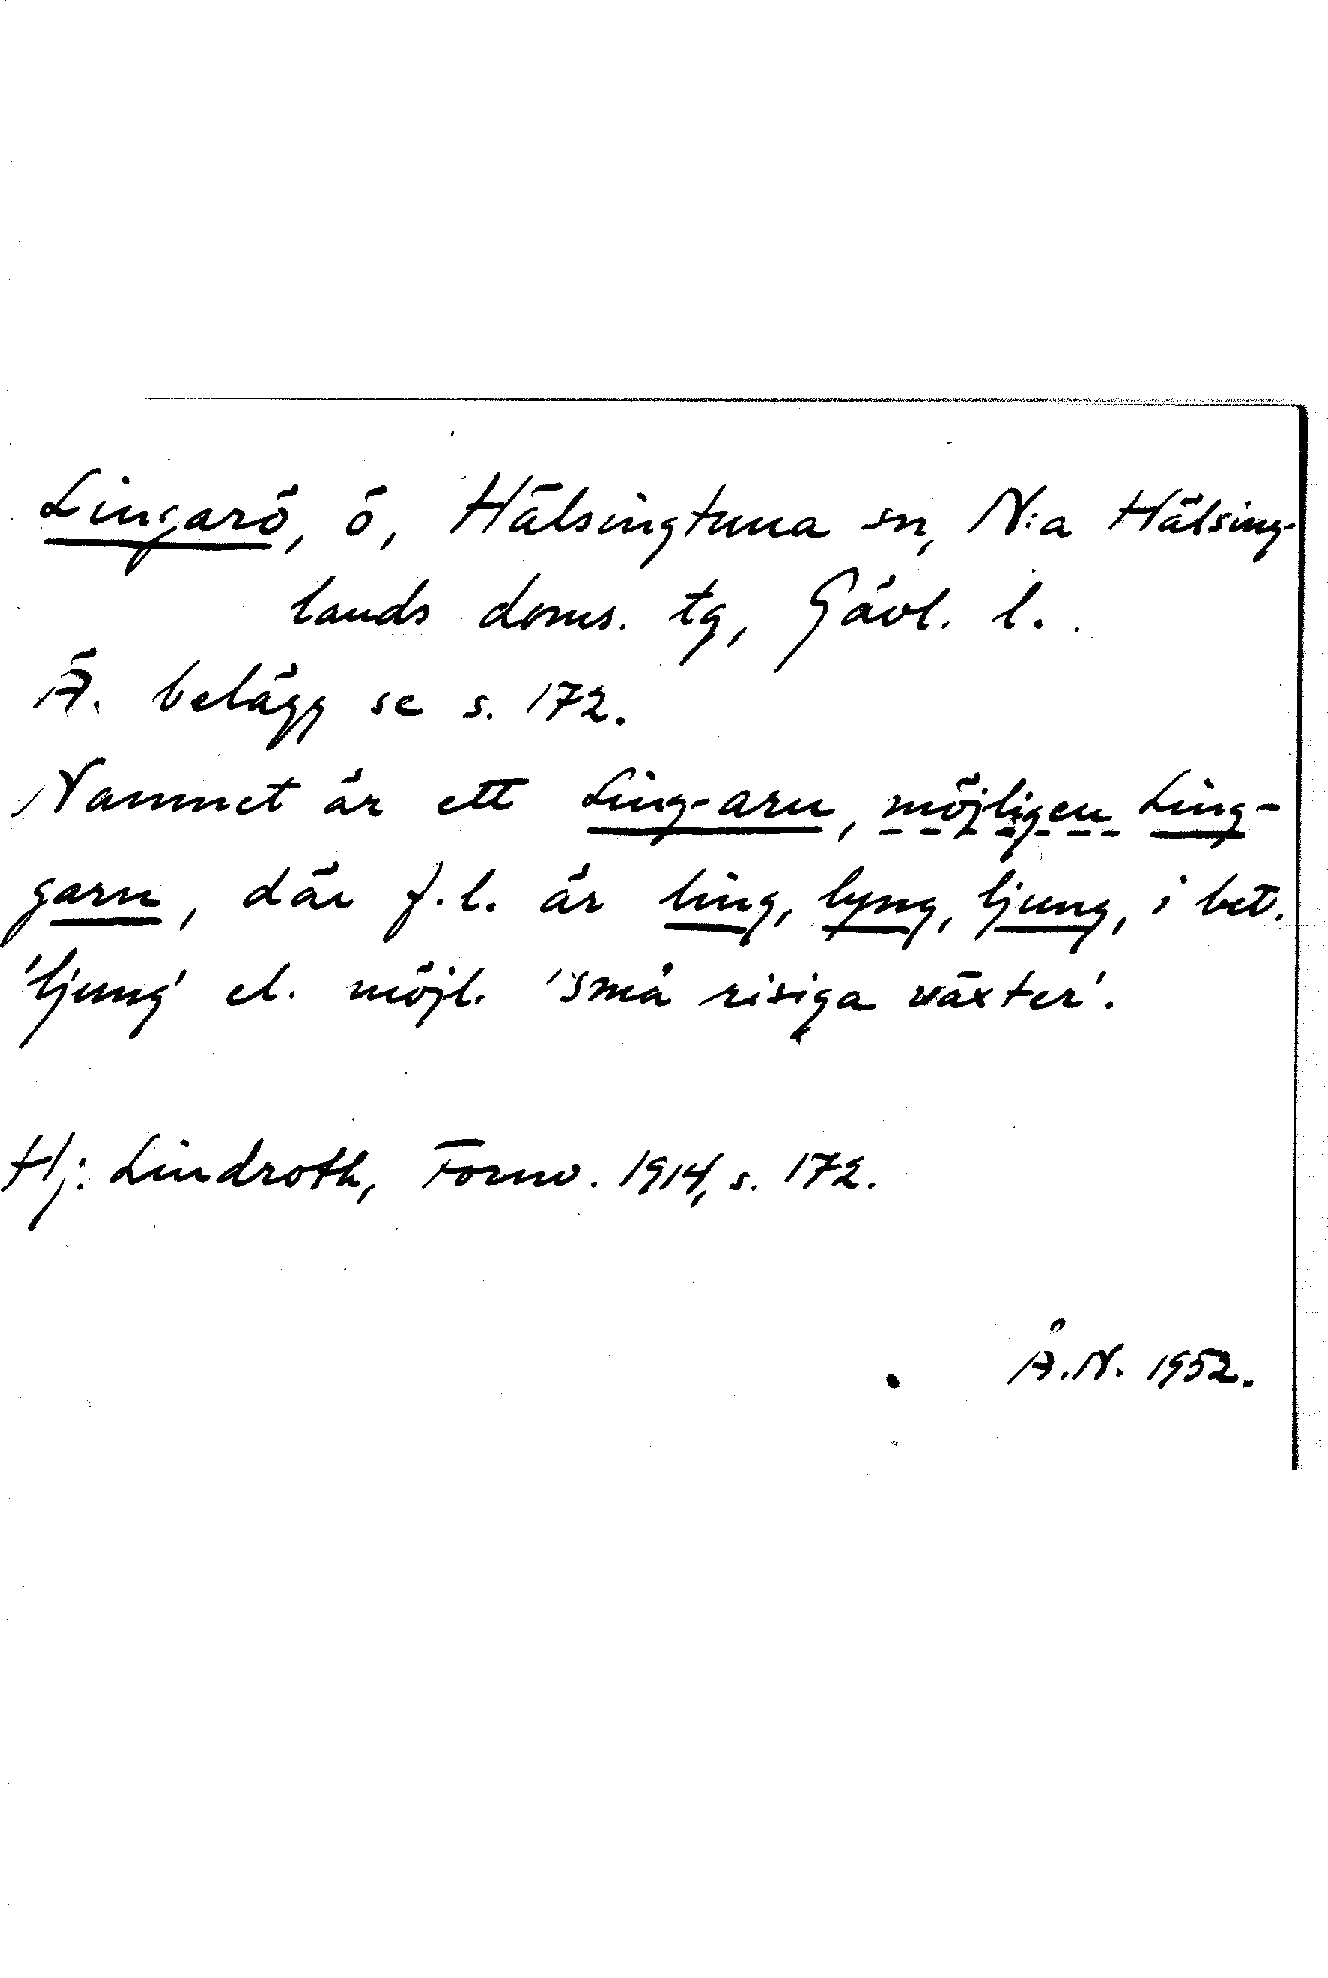 Lingarö, ö, Hälsingtuna sn, N:a Hälsing-
lands doms. tg, Gävl. l.
Ä. belägg se s. 172.
Namnet är ett Ling-arn, möjligen Ling-
garn, där f.l. är ling, lyng, ljung, i bet.
'ljung' el. möjl. 'små risiga växter'.
Hj: Lindroth, Fornv. 1914, s. 172.
Å.N. 1952.